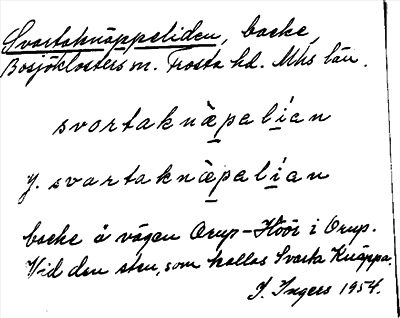 Svartaknäppeliden, backe,
Bosjöklosters sn. Frosta hd. Mhs län.
svortaknæpelían
y. svartaknæpelían
backe å vägen Orup-Höör i Orup.
Vid den sten, som kallas Svarta Knäppa.
I. Ingers 1954.